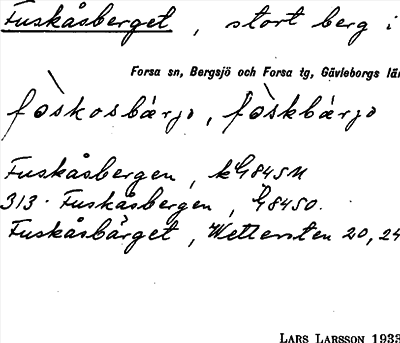 Fuskåsberget, stort berg i
Forsa sn, Bergsjö och Forsa tg, Gävleborgs län
fòskosbárjo, fòskbárjo
Fuskåsbergen,
313. Fuskåsbergen, G8450.
Fuskåsbärget, Wettersten 20, 24
LARS LARSSON 1933